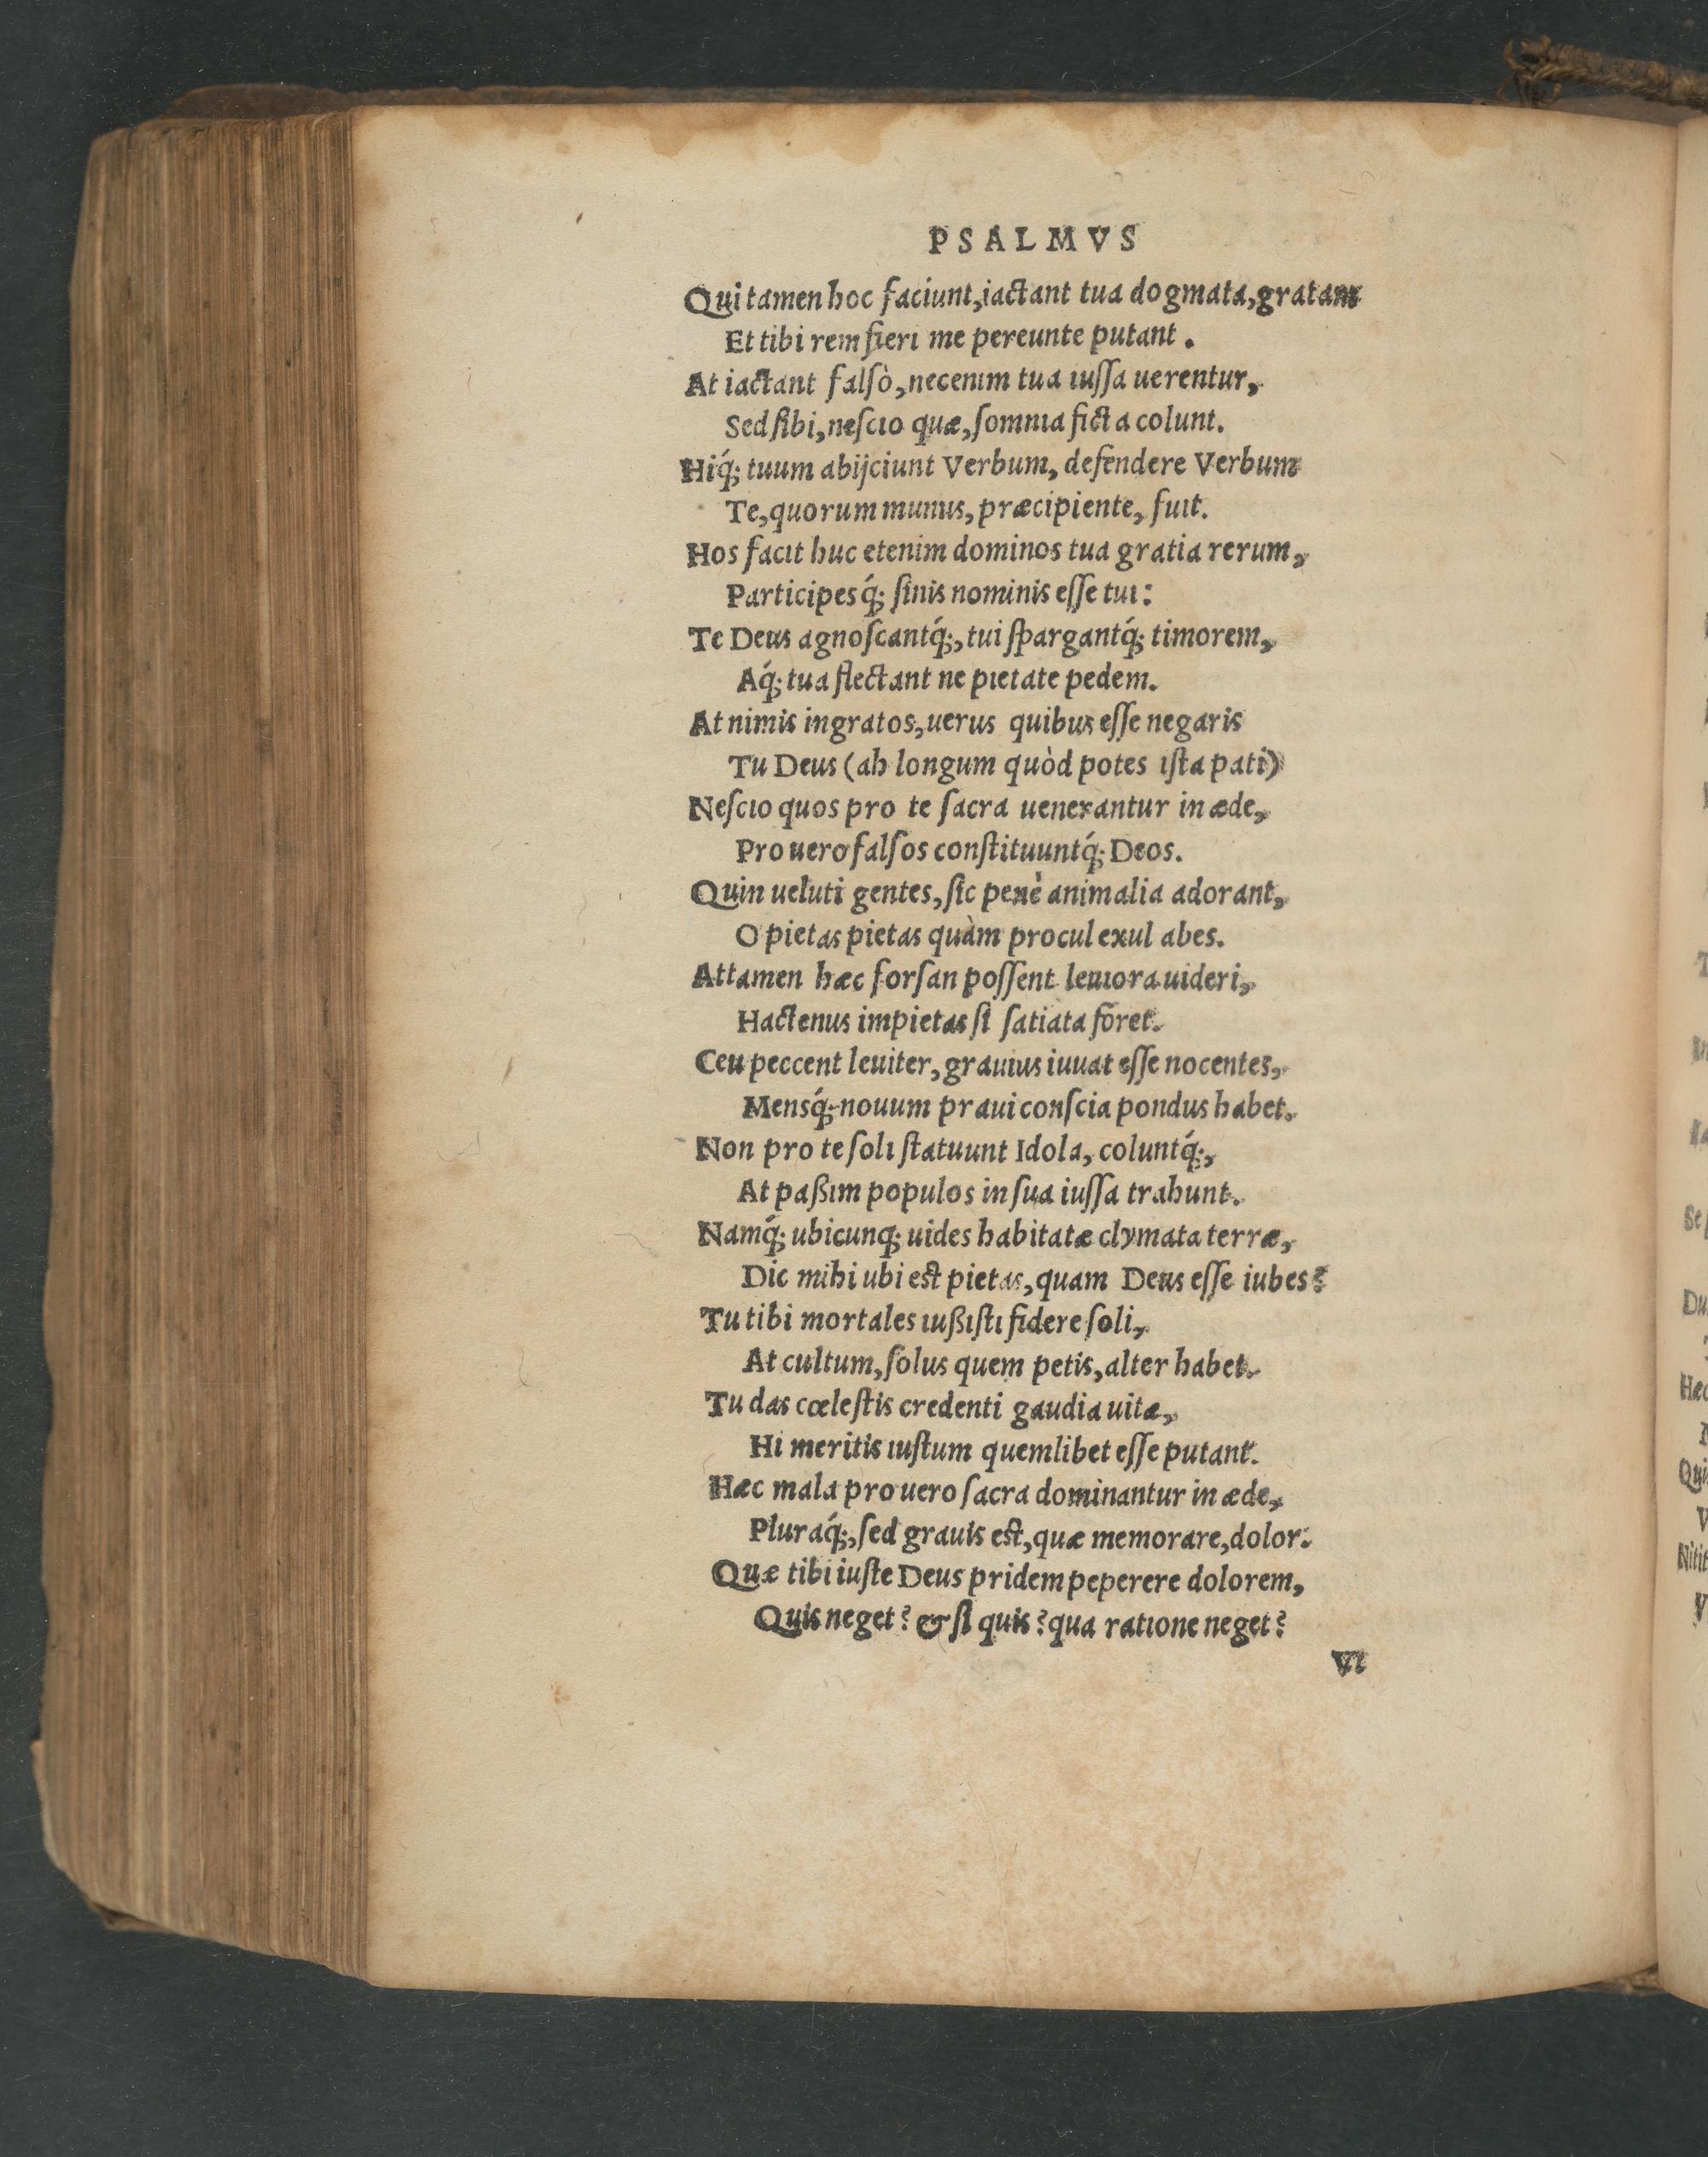 PSALMVS
Qui tamen hoc faciunt, iactant tua dogmata, gratam
Et tibi rem fieri me pereunte putant.
At iactant falsò, nec enim tua iussa uerentur,
Sed sibi, nescio quæ, somnia ficta colunt.
Hiq́; tuum abijciunt Verbum, defendere Verbum
Te, quorum munus, præcipiente, fuit.
Hos facit huc etenim dominos tua gratia rerum,
Participesq́; sinis nominis esse tui:
Te Deus agnoscantq́;, tui spargantq́; timorem,
Aq́; tua flectant ne pietate pedem.
At nimis ingratos, uerus quibus esse negaris
Tu Deus (ah longum quòd potes ista pati)
Nescio quos pro te sacra uenerantur in æde,
Pro uero falsos constituuntq́; Deos.
Quin ueluti gentes, sic penè animalia adorant,
O pietas pietas quàm procul exul abes.
Attamen hæc forsan possent leuiora uideri,
Hactenus impietas si satiata foret.
Ceu peccent leuiter, grauius iuuat esse nocentes,
Mensq́; nouum praui conscia pondus habet.
Non pro te soli statuunt Idola, coluntq́;,
At paßim populos in sua iussa trahunt.
Namq́; ubicunq; uides habitatæ clymata terræ,
Dic mihi ubi est pietas, quam Deus esse iubes?
Tu tibi mortales iußisti fidere soli,
At cultum, solus quem petis, alter habet.
Tu das cœlestis credenti gaudia uitæ,
Hi meritis iustum quemlibet esse putant.
Hæc mala pro uero sacra dominantur in æde,
Pluraq́;, sed grauis est, quæ memorare, dolor.
Quæ tibi iuste Deus pridem peperere dolorem,
Quis neget? & si quis? qua ratione neget?
Vt